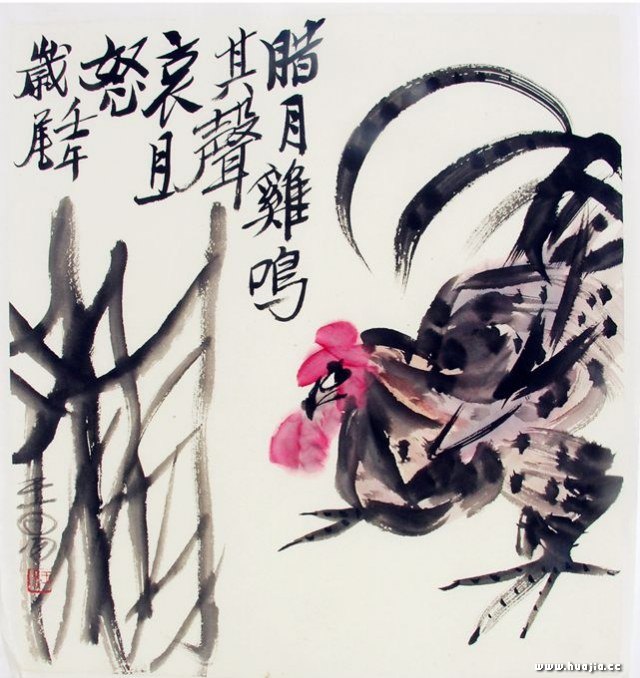 腊月雞鳴
其聲
哀且
怒
壬午
歲尾
www.huajia.cc